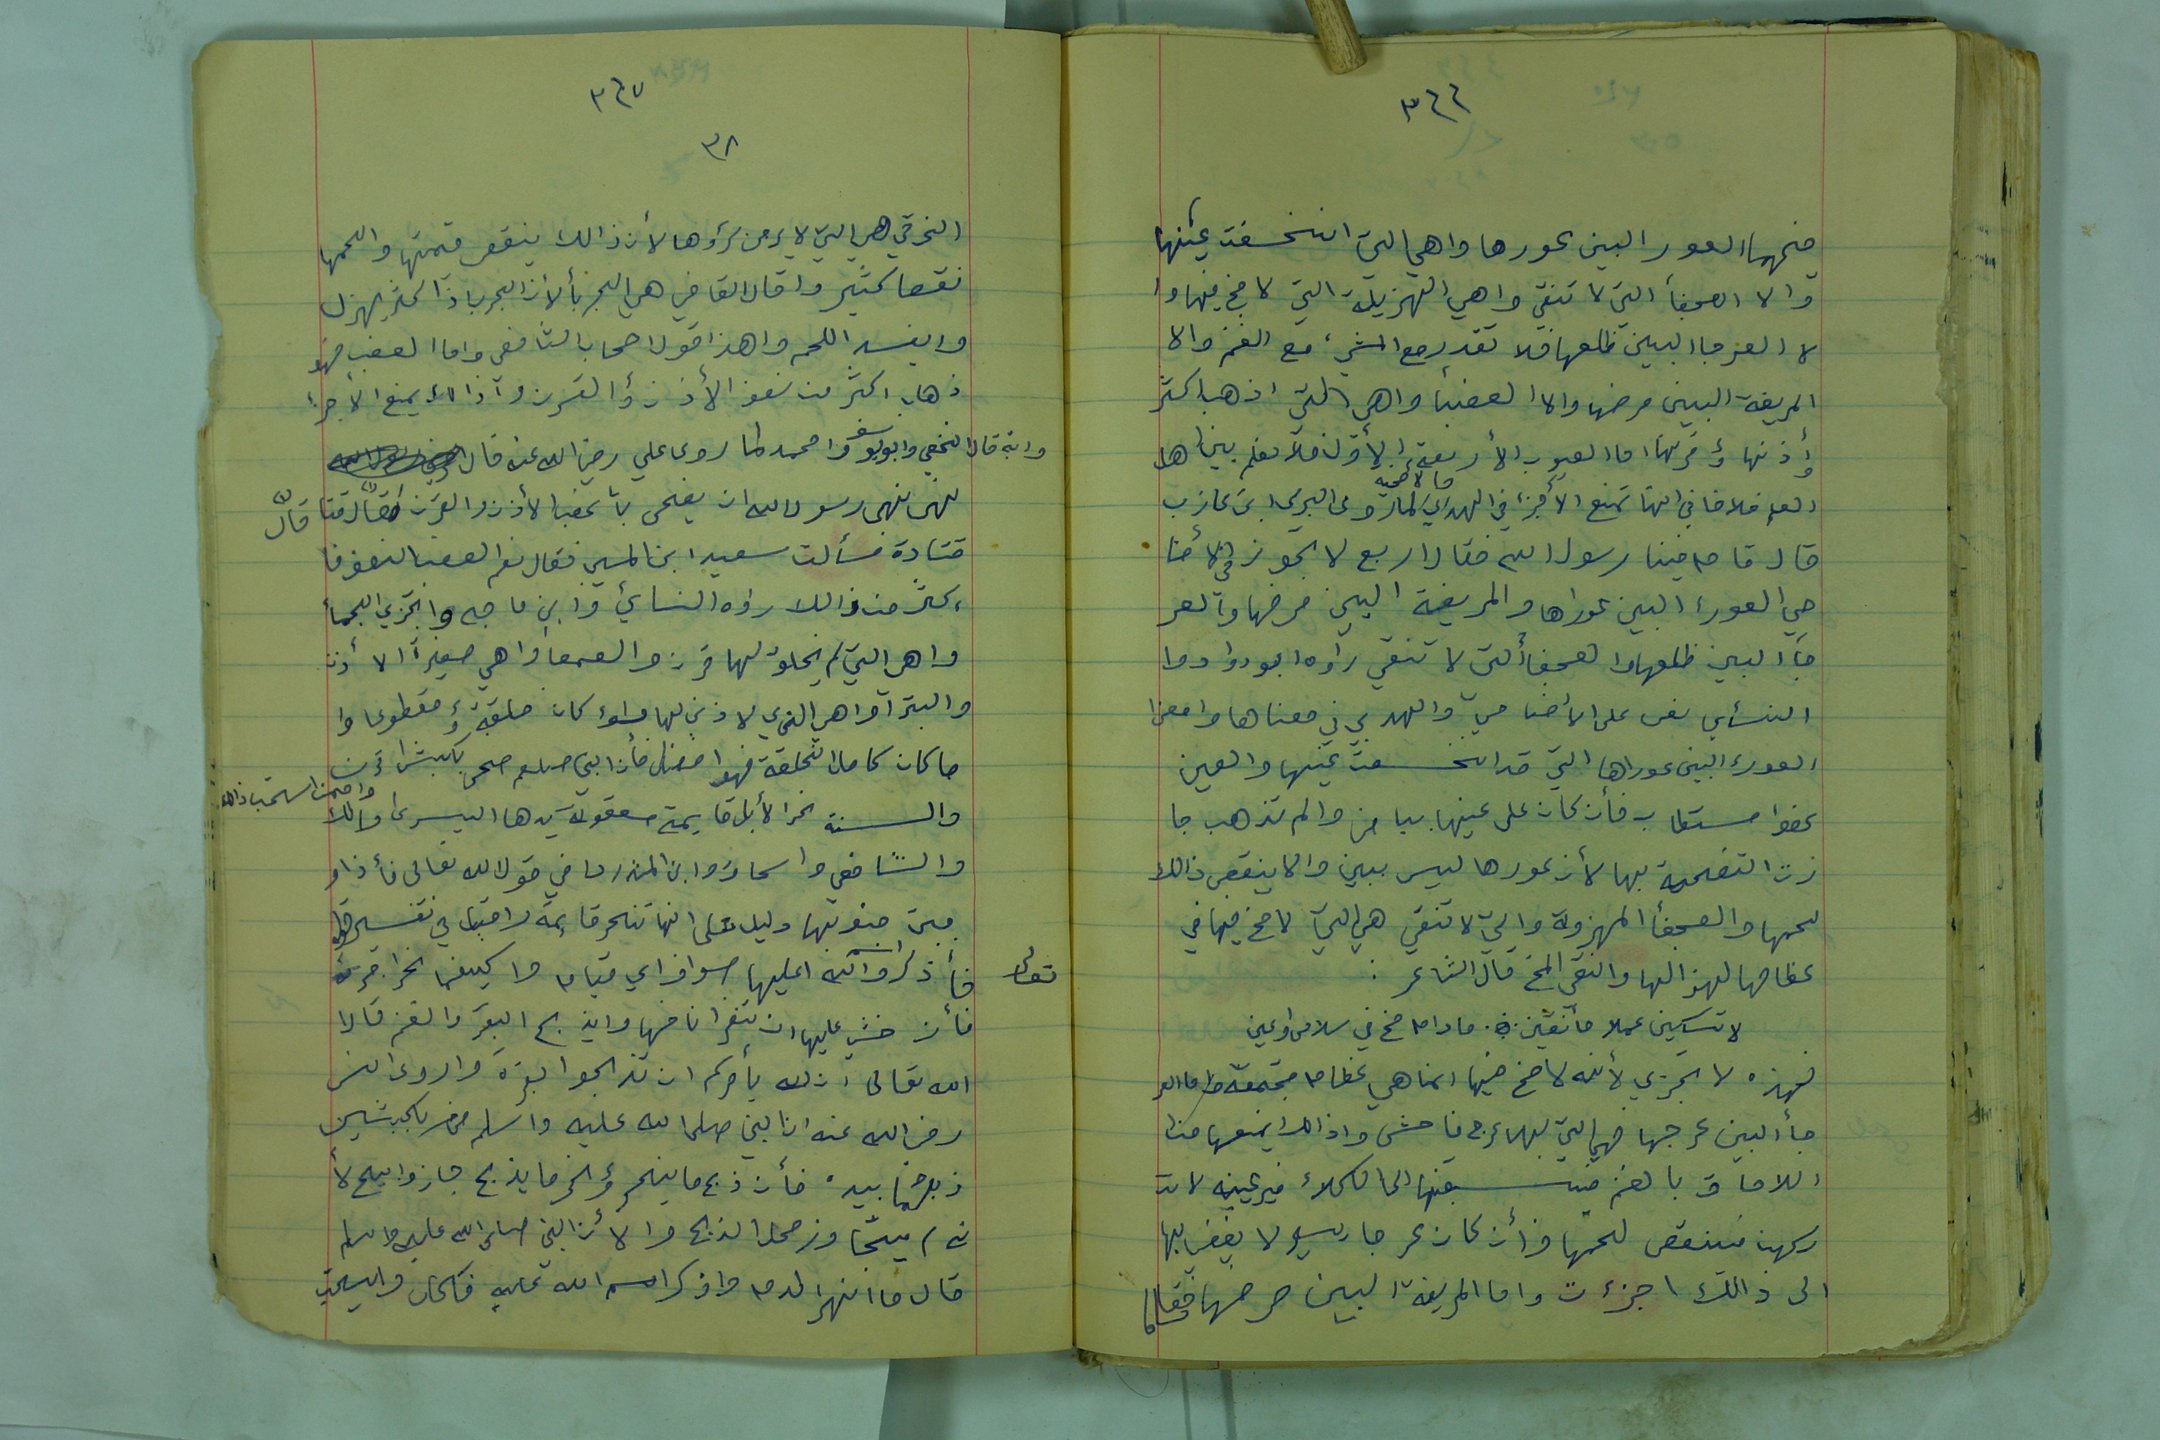 ٣٦٦
فمنها العور البين عورها واهي التي انخسفت عينها
والا العجفأ التي لا تنقي واهي الهزيلة التي لا مخ فيها وا
لا العرجا البين ظلعها فلا تقدر مع المشي مع الغنم والا
المريضة البين مرضها والا العضبا واهي التي اذهب اكثر
أذنها ؤ قرنها اما العيوب الأربعة الأول فلا نعلم بين اهل
العلم خلافا في انها تمنع الأجزء في الهدي والاضحيه لما روى البرى ابن عازب
قال قام فينا رسول الله فقال اربع لا تجوز في الأضا
حي العورء البين عوراها والمريضة البين مرضها والعر
جأ البين ظلعها والعجفأ التي لا تنقي راوه ابودواد وا
النسأي نص على الأضاحي والهدي في معناها وامعنا
العورء البين عوراها التي قد انخسفت عينها والعين
عضوا مستطاب فأن كان على عينها بياض والم تذهب جا
زت التضحية بها لأن عورها ليس ببين والا ينقص ذالك
لحمها والعجفأ المهزولة والتي لا تنقي هي التي لا مخ فيها في
عظامها لهزالها والنقي المخ قال الشاعر :
لا تشكين عملا مأنقين ∴ مادام مخ في سلامى اوعين
فهذه لا تجزي لأنه لا مخ فيها انما هي عظام مجتمعة واما العر
جأ البين عرجها فهي التي بها عرج فاحش واذالك يمنعها من ا
اللاحاق بالغنم فتسبقنها الى الكلاء فيرعينه لاتد
ركهن فينقص لحمها وأن كان عرجا يسير لا يفضي بها
الى ذالك اجزءت واما المريضة البين مرضها فقال ا
٣٦٧
٣٨
الخرقي هي التي لا يرجى برؤها لأن ذالك ينقص قيمتها والحمها
نقصا كثير واقال القاضي هي الجربأ لأن الجرب اذا كثر يهزل
وايفسد اللحم واهذا قول اصحاب الشافعي واما العضب فهو
ذهاب اكثر من نصف الأذن ؤ القرن وآذالك يمنع الأجزا
وابه قال النخعي وابو يوسف وا محمد لما روى علي رضي الله عنه قال
نهى رسول الله ان يضحى بأعضب الأذن والقرن قال قتا قال
قتادة فسألت سعيد ابن المسيب فقال نعم العضب النصف فا
اكثر من ذالك رواه النسائي وابن ماجه واتجزي الجمأ
واهي التي لم يخلق لها قرن والصمعأ واهي صغيرة الأذن
والبترأ واهي الذي لا ذنب لها سواء كان خلقة ؤ مقطوعا وا
ما كان كامل الخلقة فهوا افضل فأن النبي صلعم ضحى بكبش اقرن
والسنة نحر الأبل قايمة معقولة يدها اليسرى وامن استحب ذالك مالك
والشافعي واسحاق وابن المنذر لما في قول الله تعالى فأذا و
جبت جنوبها دليل على انها تنحر قائمة واقيل في تفسير قوله
تعالى فأذكروا اسم الله اعليها صواف اي قيام وا كيفما نحر اجزءه
فأن خشي عليها ان تنفر اناخها وايذبح البقر والغنم قال
الله تعالى ان الله يأمركم ان تذبحوا بقرة واروى انس
رضي الله عنه ان النبي صلى الله عليه واسلم ضحى بكبشين
ذبحهما بيده فأن ذبح ما ينحر ؤ نحر ما يذبح جاز وابيح لأ
نه لم يتجاوز محل الذبح والأن النبي صلى الله عليه واسلم
قال ما انهر الدم واذكر اسم الله عليه فكل واليستحب